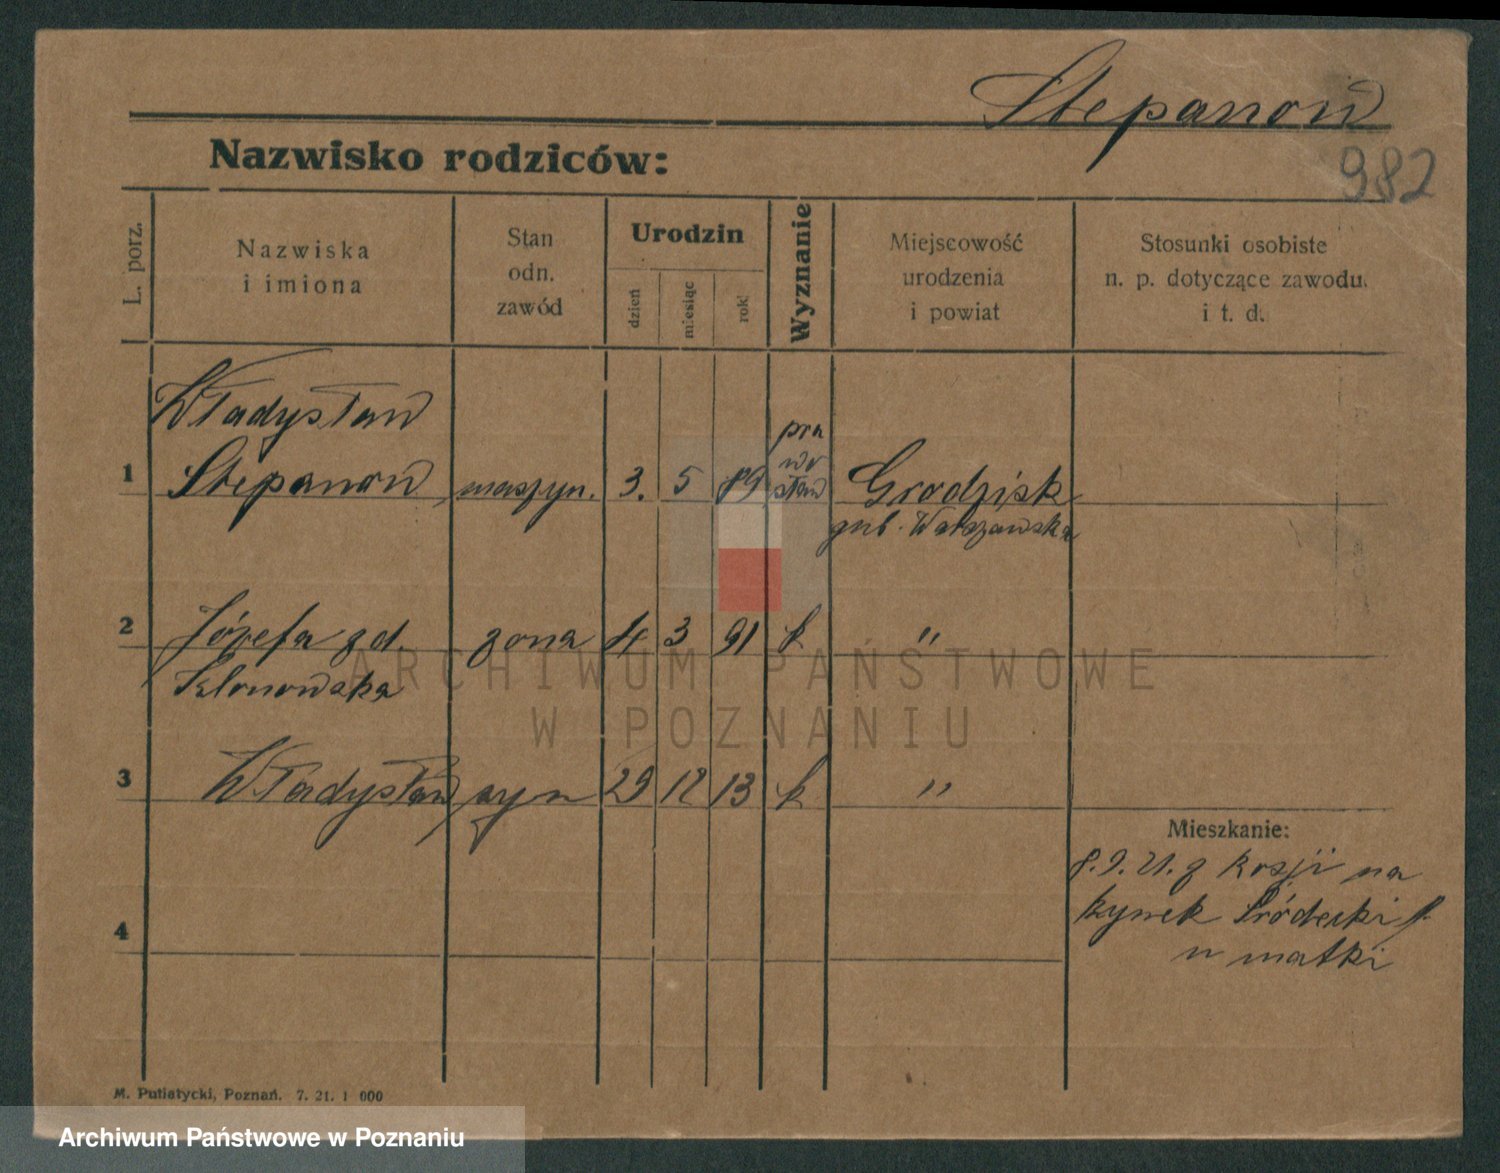 Stepanow
982
Nazwisko rodziców:
L. porz.
Nazwiska
i imiona
Stan
odn.
zawód
Urodzin
dzień
miesiąc
rok
Wyznanie
Miejscowość
urodzenia
i powiat
Stosunki osobiste
n. p. dotyczące zawodu.
i t. d.
Władysław
1 Stepanow maszyn. 3. 5 89 pra
wo
sław
Grodzisk
gub. Warszawska
2 Józefa zd. zona 4 3 91 k "
Klonowska
3 Władysław syn 29 12 13 k "
Mieszkanie:
8.9.21. z Rosji na
Rynek Śródecki
u matki
4
ARCHIWUM PAŃSTWOWE
W POZNANIU
M. Putiatycki, Poznań. 7. 21. 1 000
Archiwum Państwowe w Poznaniu